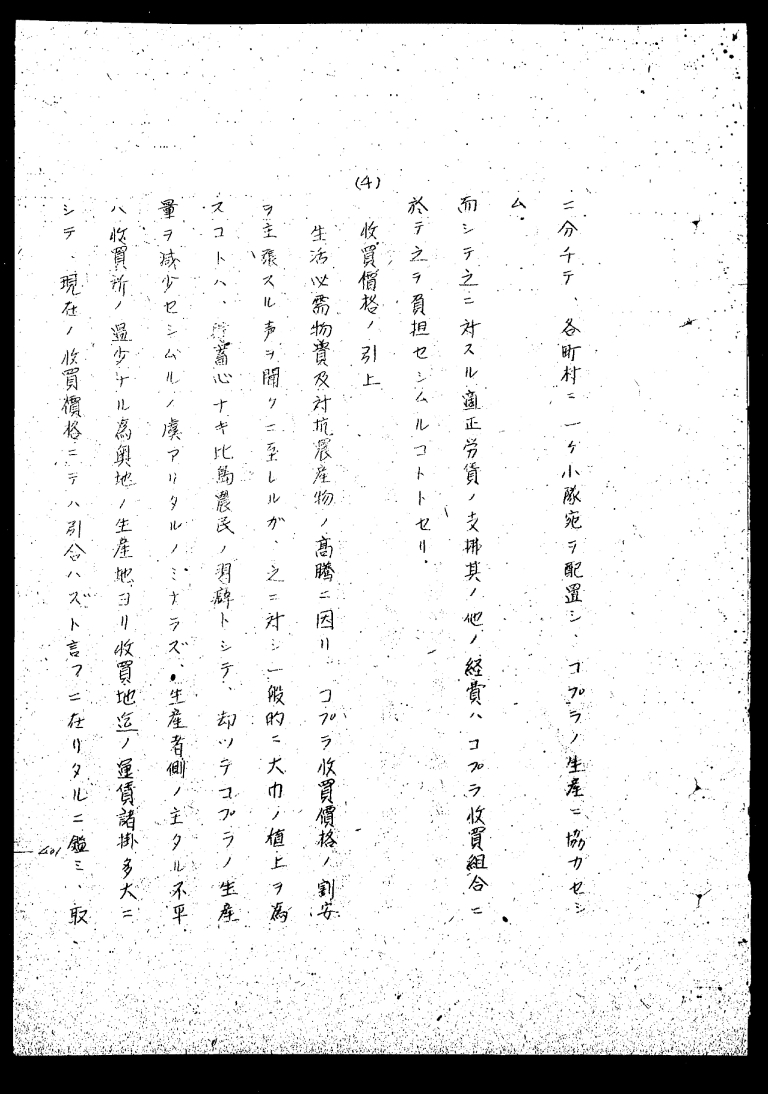 ニ分チテ、各町村ニ一ケ小隊宛ヲ配置シ、コプラノ生産ニ協力セシ
ム
而シテ之ニ対スル適正労賃ノ支拂其ノ他ノ経費ハコプラ収買組合ニ
於テ之ヲ負担セシムルコトトセリ.
(4)
收買價格ノ引上
生活必需物資及対抗農産物ノ高騰ニ因リ、コプラ收買價格ノ割安
ヲ主張スル声ヲ聞クニ至レルガ、之ニ対シ一般的ニ大巾ノ値上ヲ為
スコトハ、貯蓄心ナキ比島農民ノ習癖トシテ、却ツテコプラノ生産
量ヲ減少セシムルノ虞アリタルノミナラズ、生産者側ノ主タル不平
ハ收買所ノ過少ナル為奥地ノ生産地ヨリ收買地迄ノ運賃諸掛多大ニ
シテ、現在ノ收買價格ニテハ引合ハズト言フニ在リタルニ鑑ミ、取
401